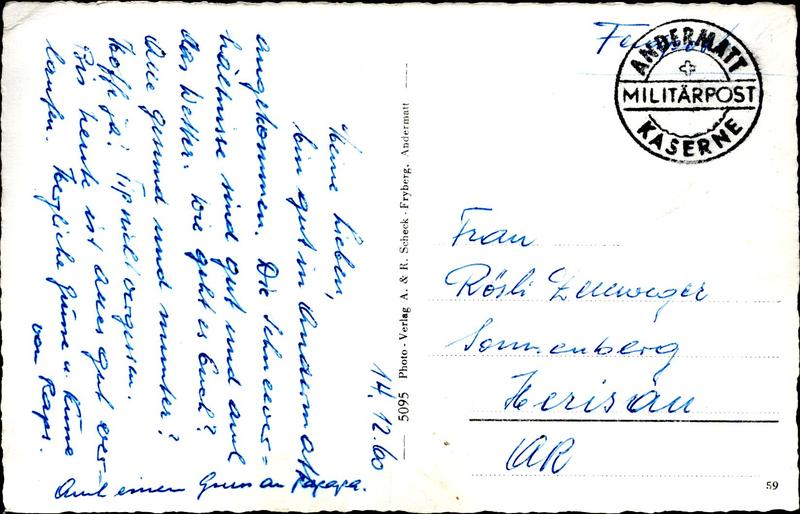 14.12.60
Meine Lieben,
bin gut in Andermatt
angekommen. Die Schneever=
hältnisse sind gut und auch
das Wetter. Wie geht es Euch?
Alle gesund und munter?
Hoffe ja! Tip nicht vergessen.
Bis heute ist alles gut ver=
laufen. Herzliche Grüsse u. Küsse
von Raps.
Auch einen Gruss an Papapa.
5095 Photo-Verlag A. & R. Scheck-Fryberg, Andermatt
ANDERMATT
MILITÄRPOST
KASERNE
Frau
Rösli Zellweger
Sonnenberg
Herisau
AR
59